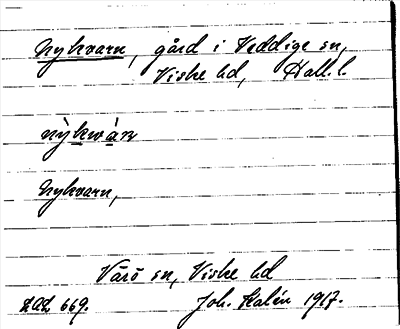 Nykvarn, gård i Veddige sn,
Viske hd, Hall. l.
nỳkwàrn
Nykvarn,
Värö sn, Viske hd
ZAL 669. Joh. Kalén 1917.